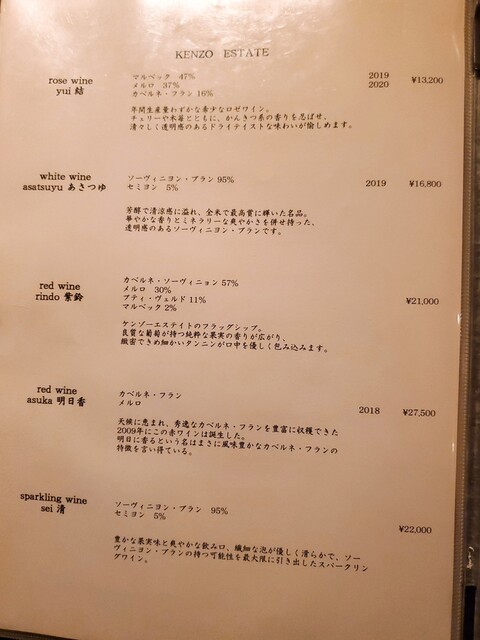 KENZO ESTATE
rose wine
yui 結
マルベック 47%
メルロ 37%
カベルネ・フラン 16%
2019
2020
¥13,200
年間生産量わずかな希少なロゼワイン。
チェリーや木苺とともに、かんきつ系の香りを忍ばせ、
清々しく透明感のあるドライテイストな味わいが愉しめます。
white wine
asatsuyu あさつゆ
ソーヴィニヨン・ブラン 95%
セミヨン 5%
2019
¥16,800
芳醇で清涼感に溢れ、全米で最高賞に輝いた名品。
華やかな香りとミネラリーな爽やかさを併せ持った、
透明感のあるソーヴィニヨン・ブランです。
red wine
rindo 紫鈴
カベルネ・ソーヴィニョン 57%
メルロ 30%
プティ・ヴェルド 11%
マルベック 2%
¥21,000
ケンゾーエステイトのフラッグシップ。
良質な葡萄が持つ純粋な果実の香りが広がり、
緻密できめ細かいタンニンが口中を優しく包み込みます。
red wine
asuka 明日香
カベルネ・フラン
メルロ
2018
¥27,500
天候に恵まれ、秀逸なカベルネ・フランを豊富に収穫できた
2009年にこの赤ワインは誕生した。
明日に香るという名はまさに風味豊かなカベルネ・フランの
特徴を言い得ている。
sparkling wine
sei 清
ソーヴィニヨン・ブラン 95%
セミヨン 5%
¥22,000
豊かな果実味と爽やかな飲み口、繊細な泡が優しく滑らかで、ソー
ヴィニヨン・ブランの持つ可能性を最大限に引き出したスパークリン
グワイン。